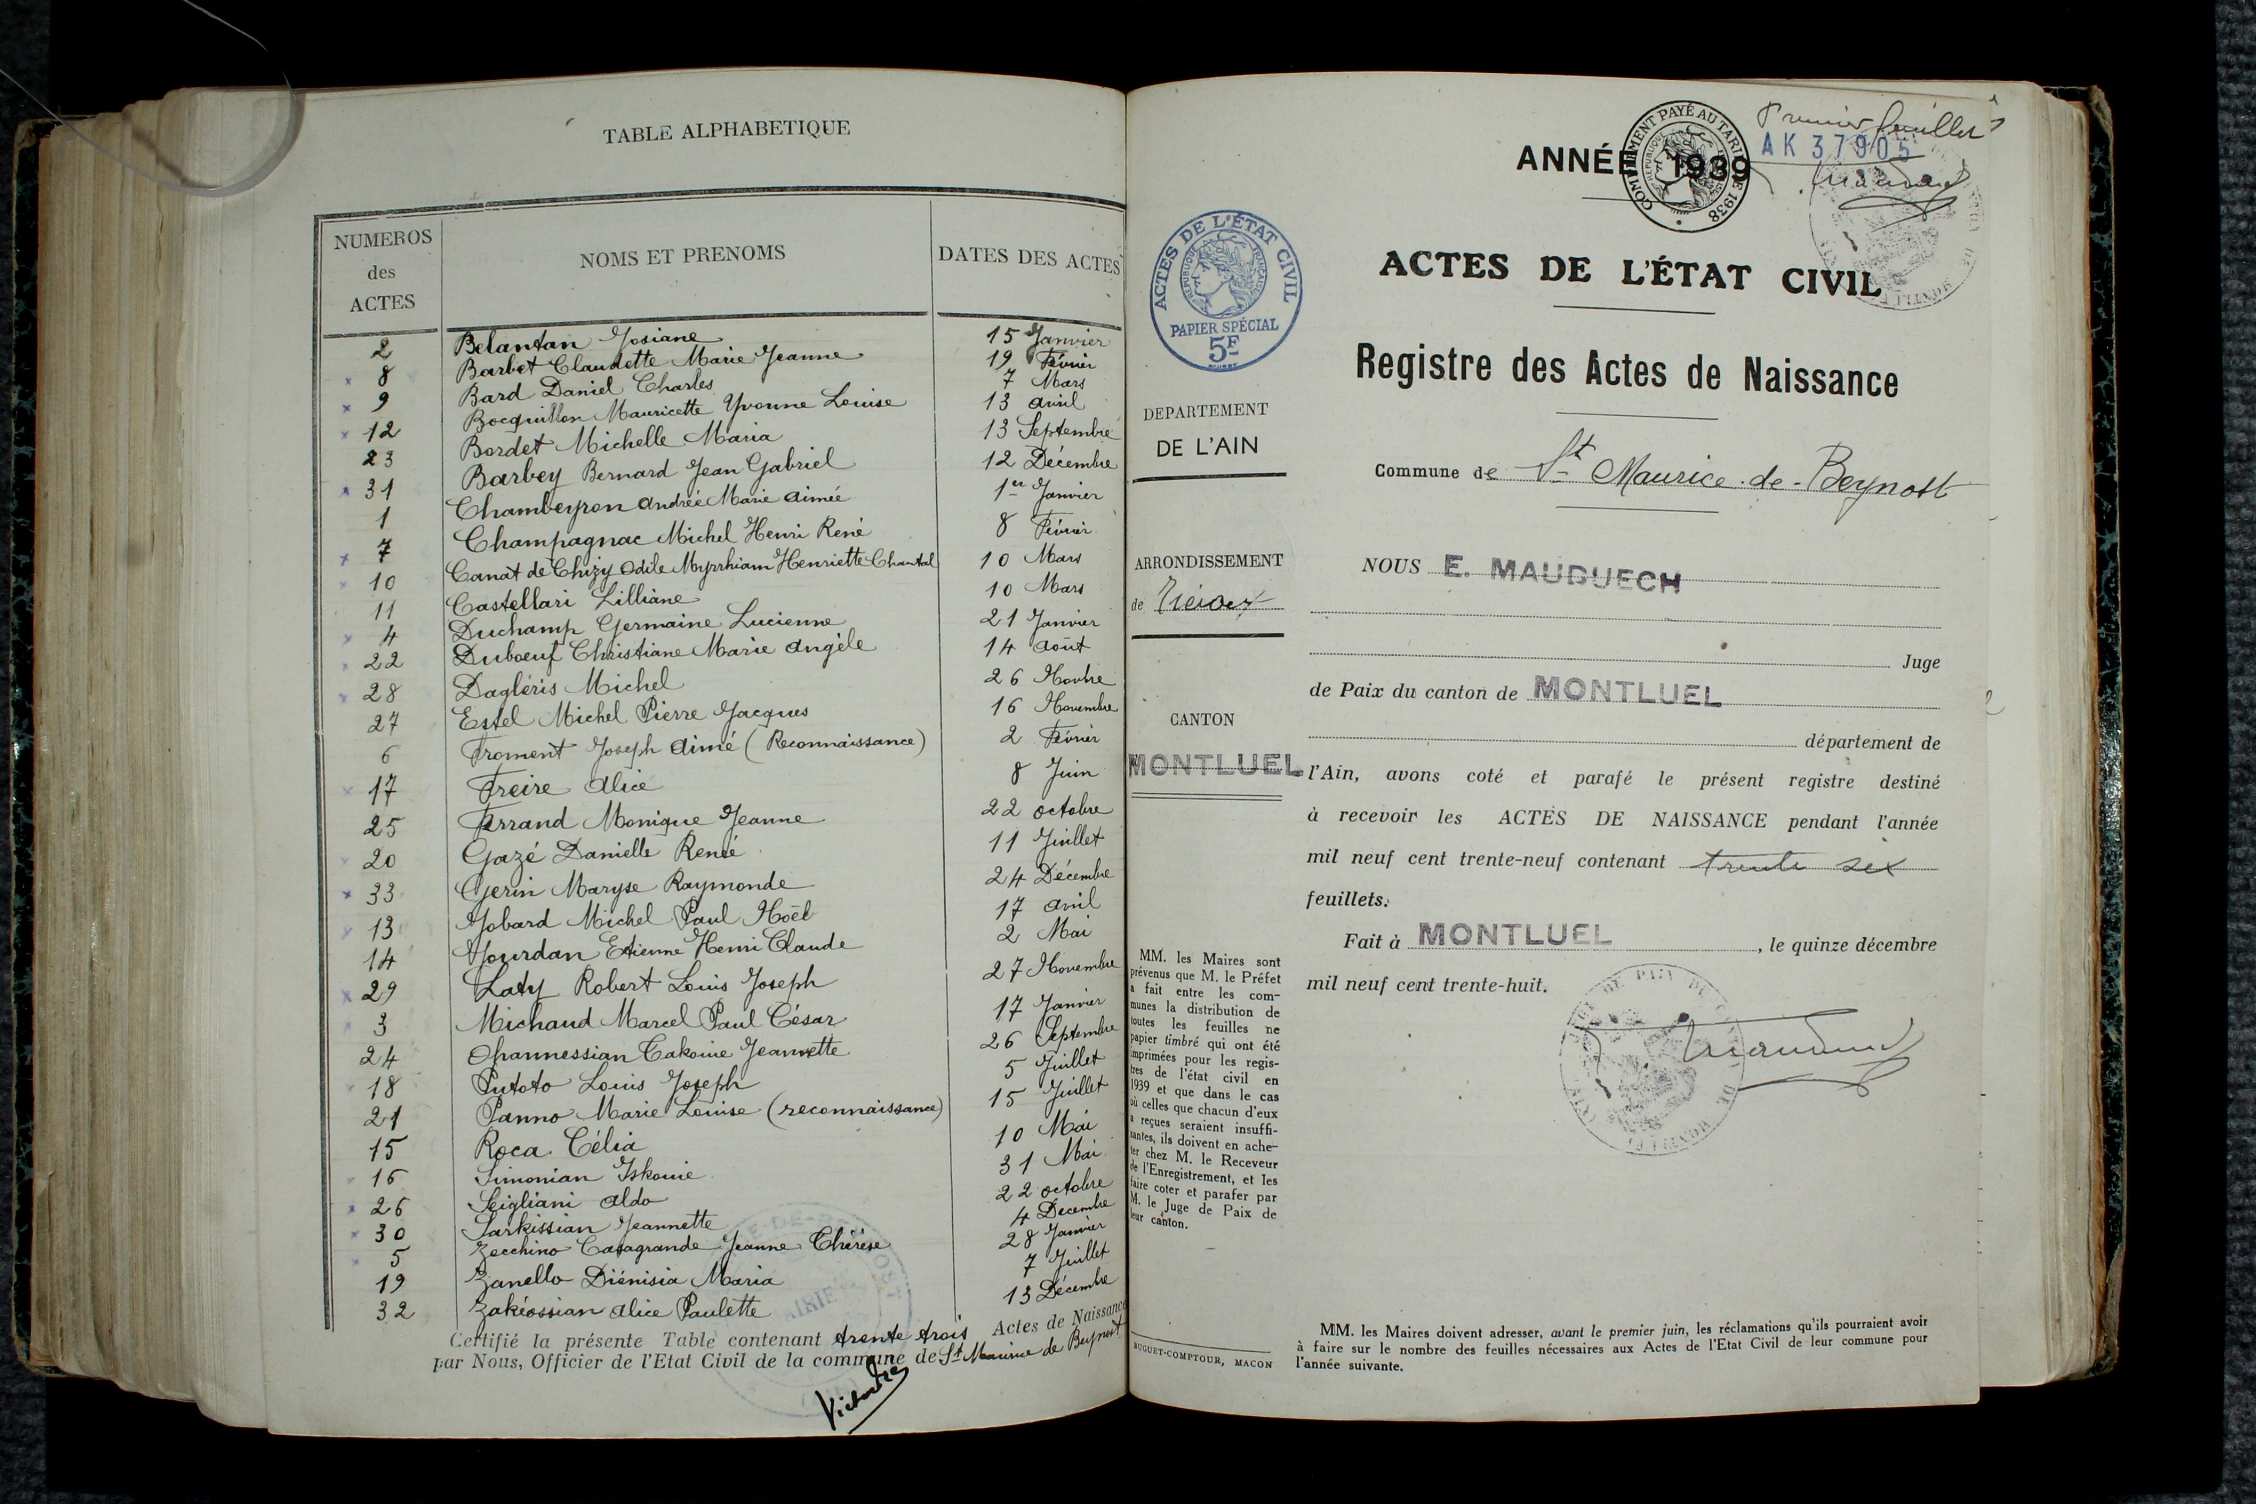 TABLE ALPHABETIQUE
NUMEROS des ACTES NOMS ET PRENOMS DATES DES ACTES
2 Belantan Josiane 15 Janvier
8 Barbet Claudette Marie Jeanne 19 Février
9 Bard Daniel Charles 7 Mars
12 Bocquillon Mauricette Yvonne Louise 13 avril
23 Bordet Michelle Maria 13 Septembre
31 Barbey Bernard Jean Gabriel 12 Décembre
1 Chambeyron Andrée Marie Aimée 1er Janvier
7 Champagnac Michel Henri René 8 Février
10 Canat de Chizy Odile Myrrhiam Henriette Chantal 10 Mars
11 Castellari Lilliane 10 Mars
4 Duchamp Germaine Lucienne 21 Janvier
22 Duboeuf Christiane Marie Angèle 14 Août
28 Dagléris Michel 26 Novbre
27 Estel Michel Pierre Jacques 16 Novembre
6 Froment Joseph Aimé (Reconnaissance) 2 Février
17 Freire Alice 8 Juin
25 Ferrand Monique Jeanne 22 octobre
20 Gazé Danielle Renée 11 Juillet
33 Gerin Maryse Raymonde 24 Décembre
13 Jobard Michel Paul Noël 17 avril
14 Jourdan Etienne Henri Claude 2 Mai
29 Laty Robert Louis Joseph 27 Novembre
3 Michaud Marcel Paul César 17 Janvier
24 Ohannessian Takouie Jeannette 26 Septembre
18 Putoto Louis Joseph 5 Juillet
21 Panno Marie Louise (reconnaissance) 15 Juillet
15 Roca Célia 10 Mai
16 Simonian Iskouie 31 Mai
26 Scigliani Aldo 22 octobre
30 Sarkissian Jeannette 4 Decembre
5 Zecchino Casagrande Jeanne Thérèse 28 Janvier
19 Zanello Diénisia Maria 7 Juillet
32 Zakéossian Alice Paulette 13 Décembre
Certifié la présente Table contenant trente trois Actes de Naissance
par Nous, Officier de l'Etat Civil de la commune de St Maurice de Beynost
COMPLÉMENT PAYÉ AU TARIF DE 1938
Premier feuillet
AK 37905
ANNÉE 1939
ACTES DE L'ÉTAT CIVIL
RÉPUBLIQUE FRANÇAISE
PAPIER SPÉCIAL
5F
ACTES DE L'ÉTAT CIVIL
Registre des Actes de Naissance
DEPARTEMENT
DE L'AIN
Commune de St Maurice-de-Beynost
ARRONDISSEMENT
de Trévoux
CANTON
MONTLUEL
NOUS E. MAUDUECH
Juge
de Paix du canton de MONTLUEL
département de
l'Ain, avons coté et parafé le présent registre destiné
à recevoir les ACTES DE NAISSANCE pendant l'année
mil neuf cent trente-neuf contenant trente six
feuillets.
Fait à MONTLUEL, le quinze décembre
mil neuf cent trente-huit.
MM. les Maires sont
prévenus que M. le Préfet
a fait entre les com-
munes la distribution de
toutes les feuilles ne
papier timbré qui ont été
imprimées pour les regis-
tres de l'état civil en
1939 et que dans le cas
où celles que chacun d'eux
a reçues seraient insuffi-
santes, ils doivent en ache-
ter chez M. le Receveur
de l'Enregistrement, et les
faire coter et parafer par
M. le Juge de Paix de
leur canton.
BUGUET-COMPTOUR, MACON
MM. les Maires doivent adresser, avant le premier juin, les réclamations qu'ils pourraient avoir
à faire sur le nombre des feuilles nécessaires aux Actes de l'Etat Civil de leur commune pour
l'année suivante.